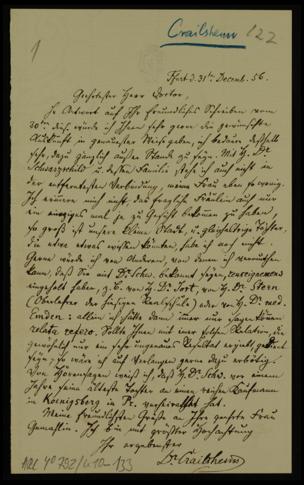 Crailsheim
122
1
Ffurt d. 31ten Decemb. 56.
Geehrtester Herr Doctor,
In Antwort auf Ihr freundliches Schreiben vom
20ten dieses würde ich Ihnen sehr gern die gewünschte
Auskunft in genauester Weise geben, ich bedaure deßhalb
sehr, dazu gänzlich außer Stand zu seyn. Mit H. Dr.
Schwarzschild u. dessen Familie stehe ich auch nicht in
der entferntesten Verbindung, meine Frau eben so wenig.
Ich erinnere mich nicht, das fragliche Fräulein auch nur
ein einziges mal zu Gesicht bekommen zu haben,
so groß ist unsere kleine Stadt, u. gleichaltrige Töchter,
die etwa etwas wissen könnten, habe ich noch nicht.
Gerne würde ich von Anderen, von denen ich vermuthen
kann, daß Sie mit Dr. Schw. bekannt seyen,
eingeholt haben, z. B. von H. Dr. Jost, von H. Dr. Stern
(Oberlehrer der hiesigen Realschule) oder von H. Dr. med.
Emden; allein ich hätte dann immer nur sagen können
relata refero. Sollte Ihnen mit einer solchen Relation, die
gewöhnlich nur ein sehr ungenaues Resultat ergibt, gedient
seyn, so wäre ich auf Verlangen gerne dazu erbötig.
Von Hörensagen weiß ich, daß H. Dr. Schw. vor einem
Jahre seine älteste Tochter an einen reichen Kaufmann
in Königsberg in Pr. verheirathet hat.
Meine freundlichsten Grüße an Ihre geehrte Frau
Gemahlin. Ich bin mit größter Hochachtung
Ihr ergebenster
Dr. Crailsheim
ARC 4° 792/
-133